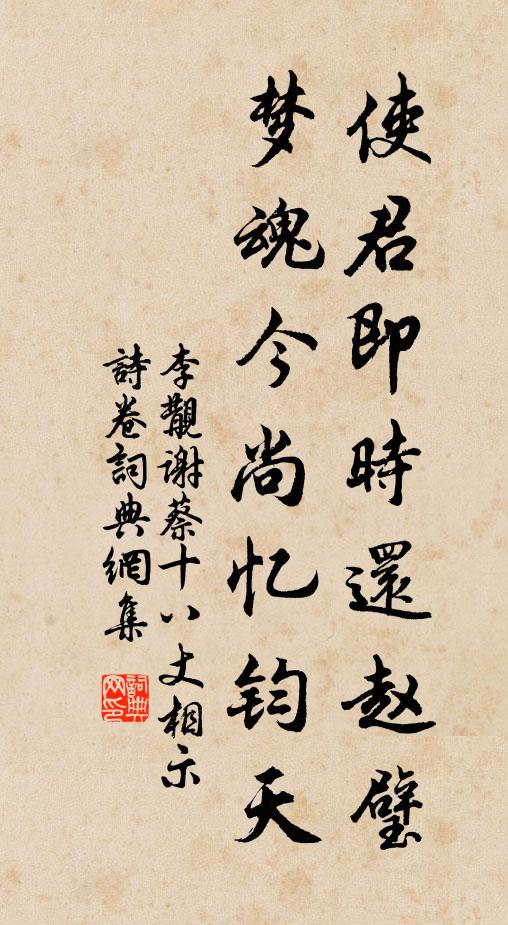 使君即時還赵璧
梦魂今尚忆钧天
李覯谢蔡十八丈相示
詩卷詞典網集
詞典网印